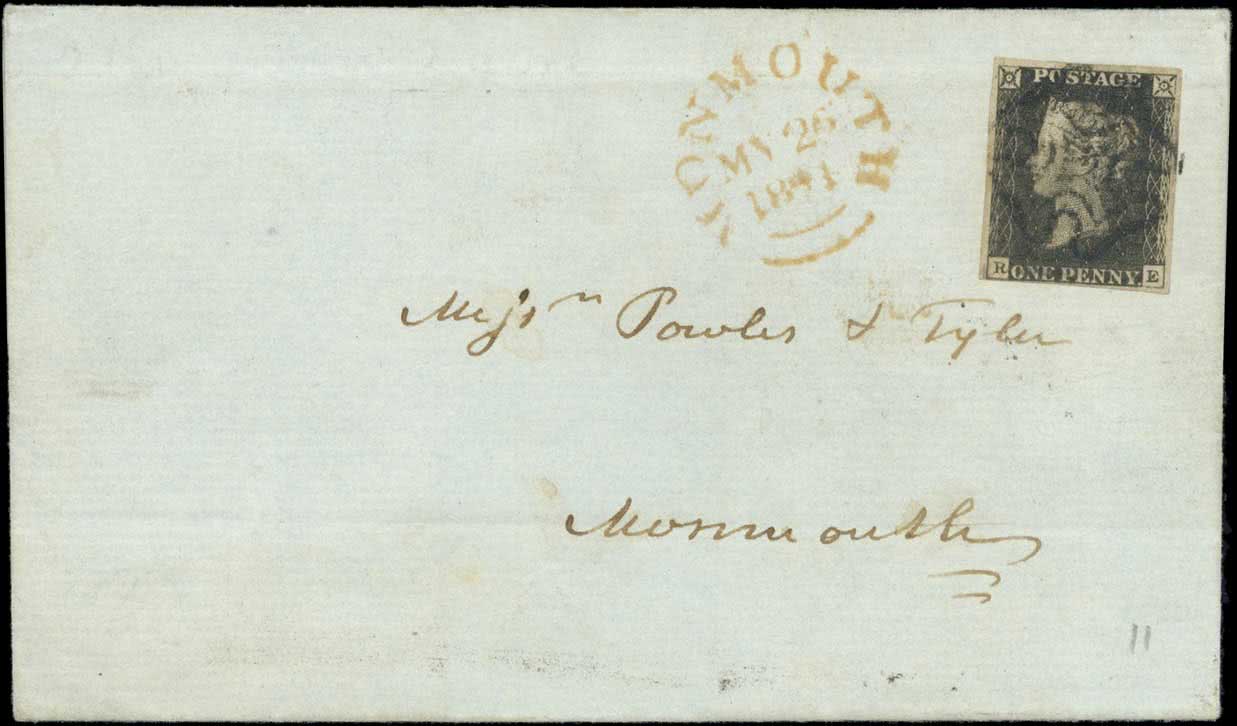 MONMOUTH
MY 26
1841
POSTAGE
R ONE PENNY. E
Mesrs Powles & Tyler
Monmouth
11